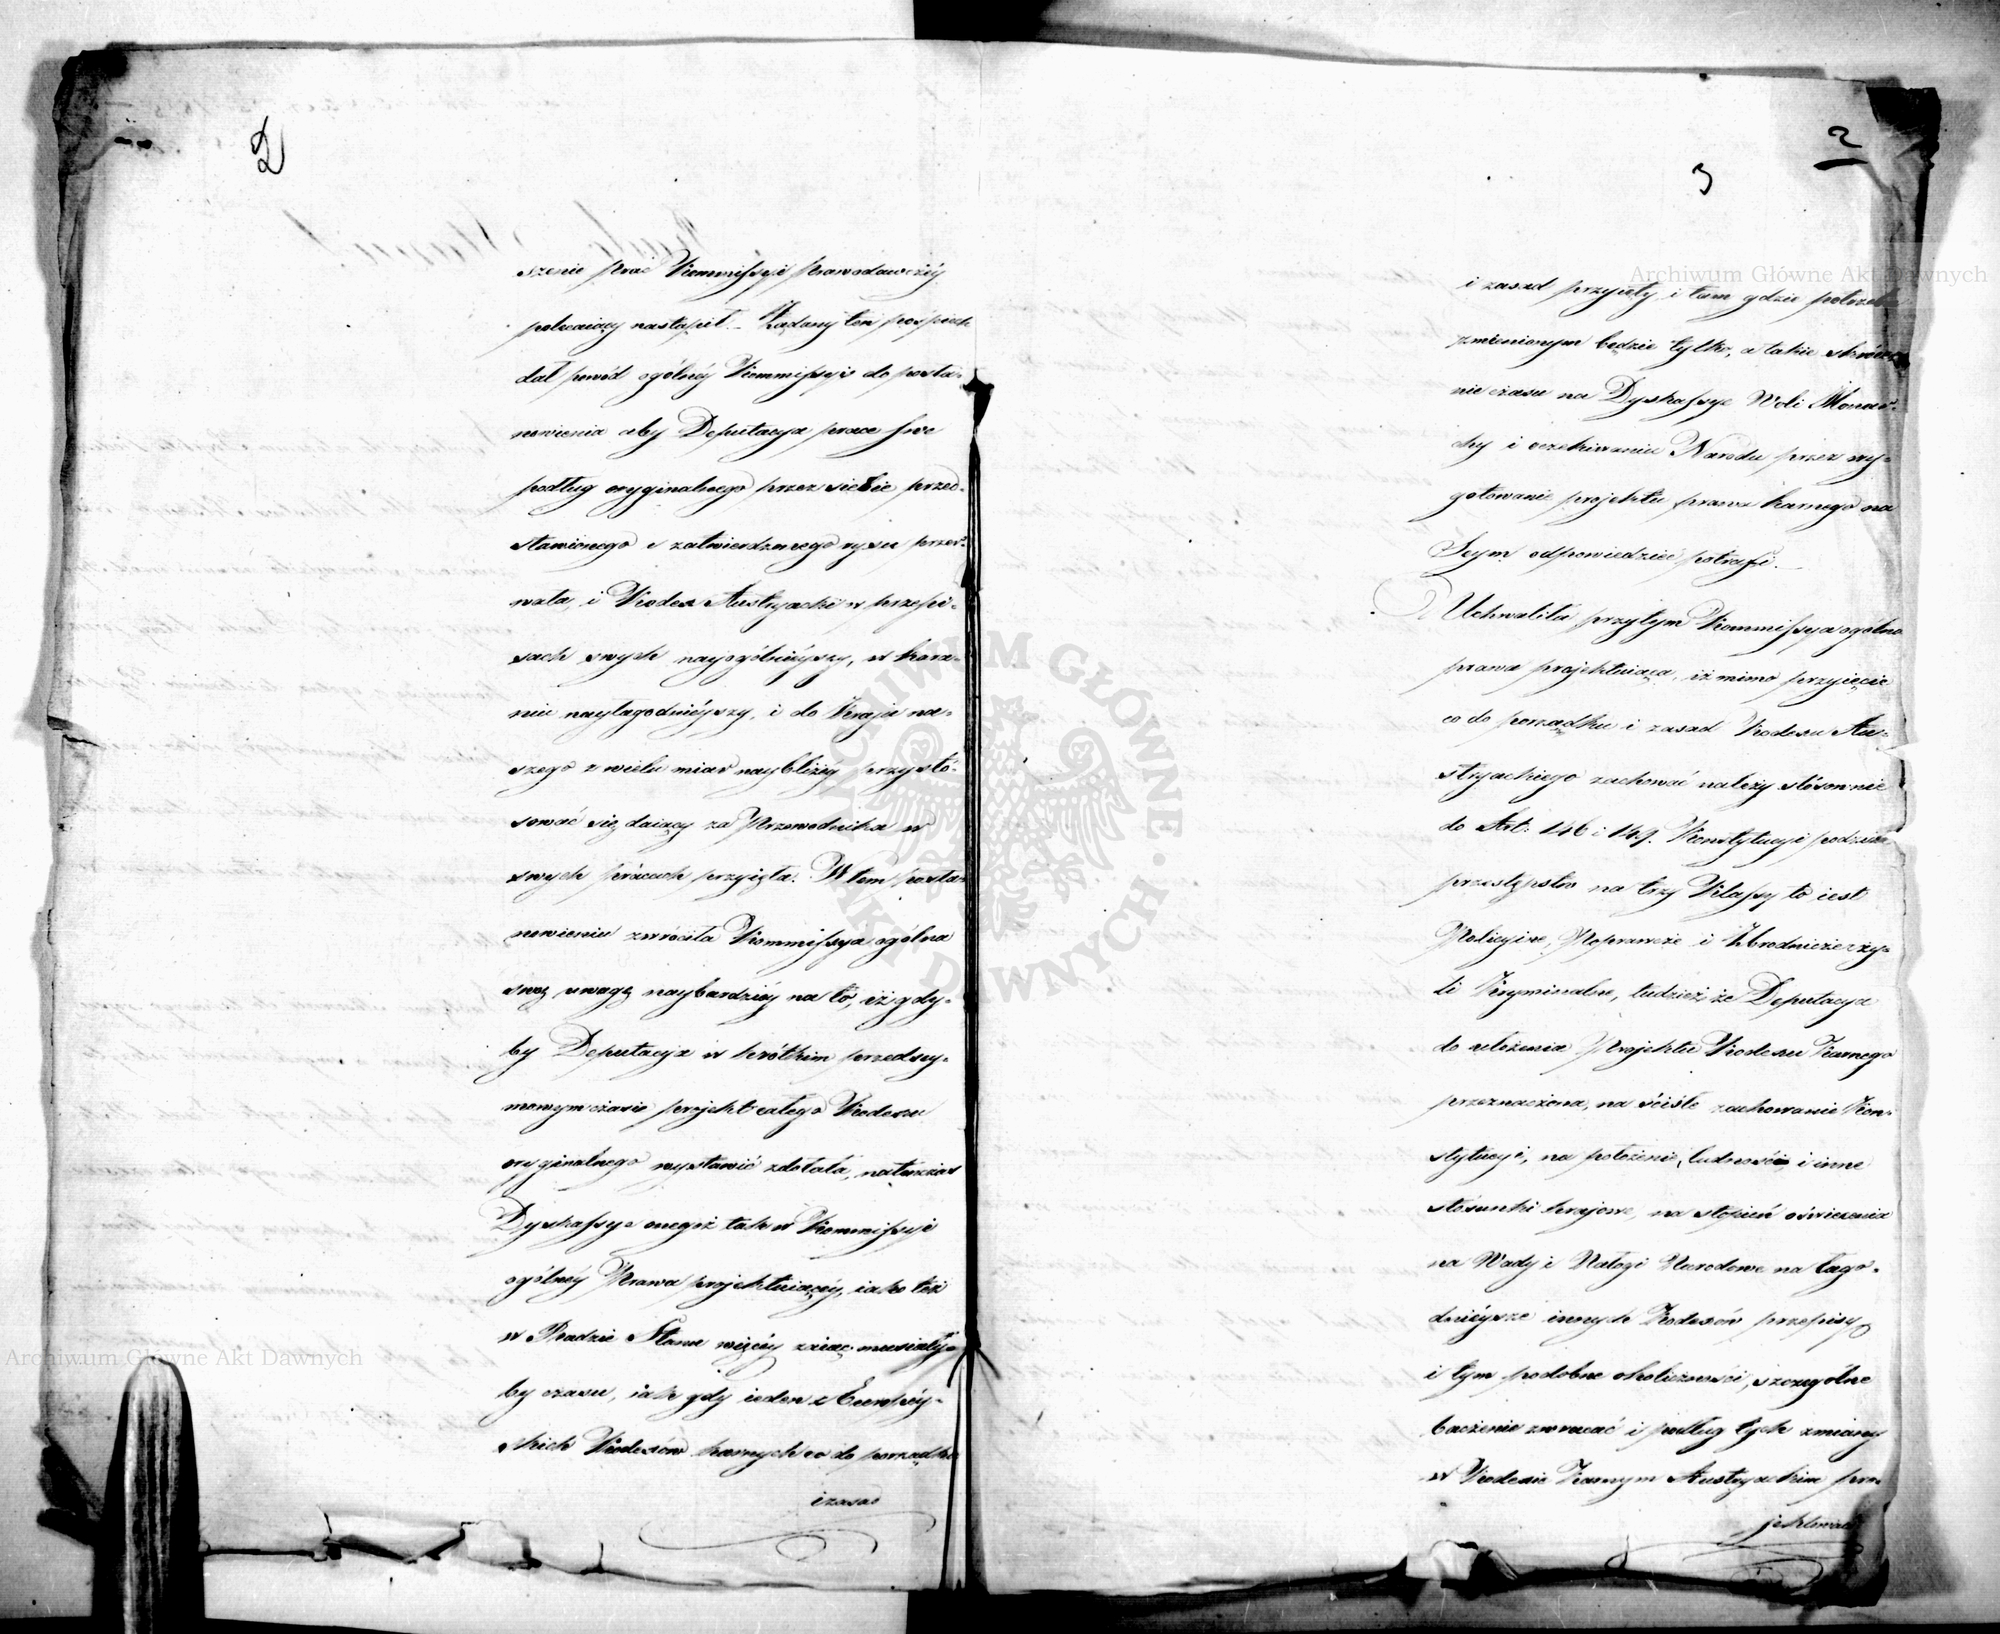 2
szenie prac Kommissyi prawodawczéy
polecaiący nastąpił. Żądany ten pośpiech
dał powód ogólnéy Kommissyi do posta-
nowienia aby Deputacya prace swe
podług oryginalnego przez siebie przed-
stawionego i zatwierdzonego rysu przer-
wała, i Kodex Austryacki w przepi-
sach swych nayogólnieyszy, w kara-
niu nayłagodnieyszy, i do Kraju na-
szego z wielu miar naybliżéy przystó-
sować się daiący za Przewodnika w
swych pracach przyięła. W tem posta-
nowieniu zwróciła Kommissya ogólna
swą uwagę naybardziéy na to, iż gdy-
by Deputacya w krótkim przedsey-
mowym czasie projekt całego Kodexu
oryginalnego wystawić zdołała, natenczas
Dyskussye onegoż tak w Kommissyi
ogólnéy Prawa projektuiącéy, iako też
w Radzie Stanu więcéy zaiąć musiały-
by czasu, iak gdy ieden z Européy-
skich Kodexów karnych co do porządku
i zasad
2
3
i zasad przyięty i tam gdzie potrzeba
zmienionym będzie tylko, a takie skróce-
nie czasu na Dyskussye Woli Monar-
chy i oczekiwaniu Narodu przez wy-
gotowanie projektu prawa karnego na
Seym odpowiedzieć potrafi.
Uchwaliła przytym Kommissya ogólna
prawa projektuiąca, iż mimo przyięcie
co do porządku i zasad Kodexu Au-
stryackiego zachować należy stósownie
do Art: 146 i 149. Konstytucyi podział
przestępstw na trzy Klassy to iest
Policyine, Poprawcze i Zbrodnicze czy-
li Kryminalne, tudzież że Deputacya
do ułożenia Projektu Kodexu Karnego
przeznaczona, na ściśłe zachowanie Kon-
stytucyi, na położenie, ludność i inne
stósunki krajowe, na stopień oświecenia
na Wady i Nałogi Narodowe na łago-
dnieysze innych Kodexów przepisy
i tym podobne okoliczności, szczególne
baczenie zwracać i podług tych zmiany
w Kodexie Karnym Austryackim pro-
jektować
Archiwum Główne Akt Dawnych
Archiwum Główne Akt Dawnych
ARCHIWUM GŁÓWNE AKT DAWNYCH